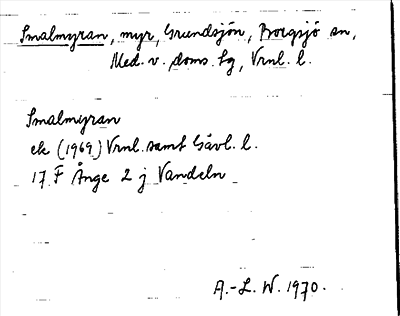 Smalmyran, myr, Grundsjön, Borgsjö sn,
Med. v. doms. lg, Vrnl. l.
Smalmyran
ek (1969) Vrnl. samt Gävl. l.
17 F Ånge 2 j Vandeln
A.-L. W. 1970.